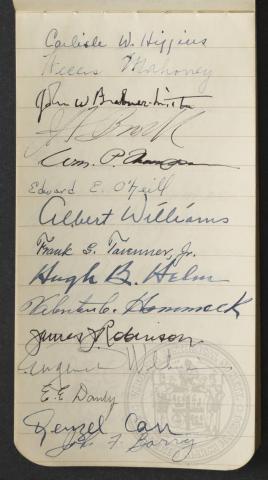 Carlisle W. Higgins
Willis Mahoney
John W. Brabner-Smith
Wm. P.
Edward E. O'Neill
Albert Williams
Frank S. Tavenner, Jr.
Hugh B. Helm
Valentine C. Hammack
James J. Robinson
Eugene Williams
E.E. Danly
Denzel Carr
Jo. F. Barry